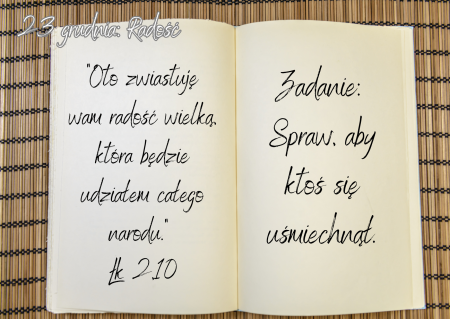 23 grudnia: Radość
"Oto zwiastuję
wam radość wielką,
która będzie
udziałem całego
narodu."
Łk 2,10
Zadanie:
Spraw, aby
ktoś się
uśmiechnął.